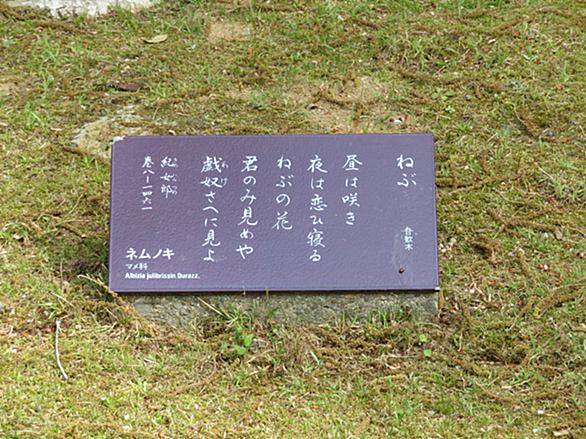 ねぶ
合歓木
昼は咲き
夜は恋ひ寝る
ねぶの花
君のみ見めや
戯奴さへに見よ
わけ
紀女郎
きのいらつめ
巻八ー一四六一
ネムノキ
マメ科
Albizia julibrissin Durazz.